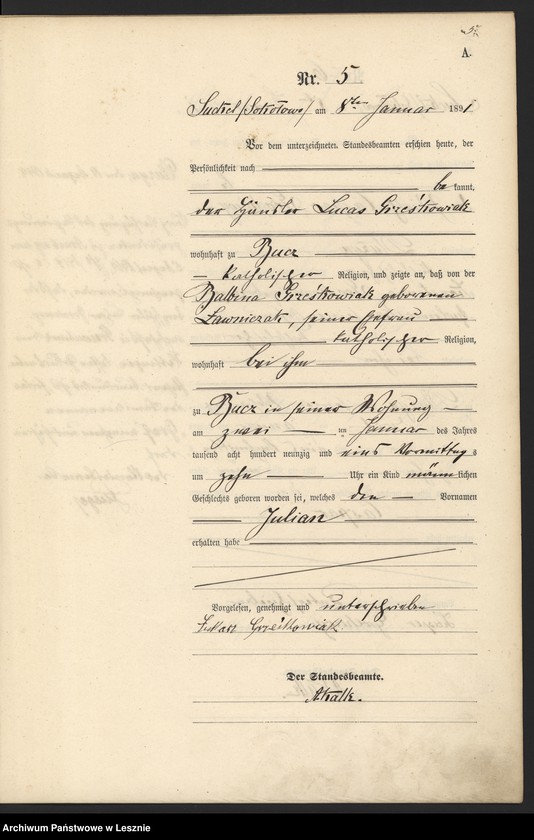 A.
Nr. 5
am 8ten Januar 1891
Vor dem unterzeichneten Standesbeamten erschien heute, der
Persönlichkeit nach
be kannt,
der Häusler Lucas Grześkowiak
wohnhaft zu Bucz
katholischer Religion, und zeigte an, daß von der
Balbina Grześkowiak geborenen
Ławniczak, seiner Ehefrau
katholischer Religion,
wohnhaft bei ihm
zu Bucz in seiner Wohnung
am zwei ten Januar des Jahres
tausend acht hundert neunzig und eins Vormittags
um zehn Uhr ein Kind männlichen
Geschlechts geboren worden sei, welches den Vornamen
Julian
erhalten habe
Vorgelesen, genehmigt und unterschrieben
Łukasz Grześkowiak
Der Standesbeamte.
Archiwum Państwowe w Lesznie